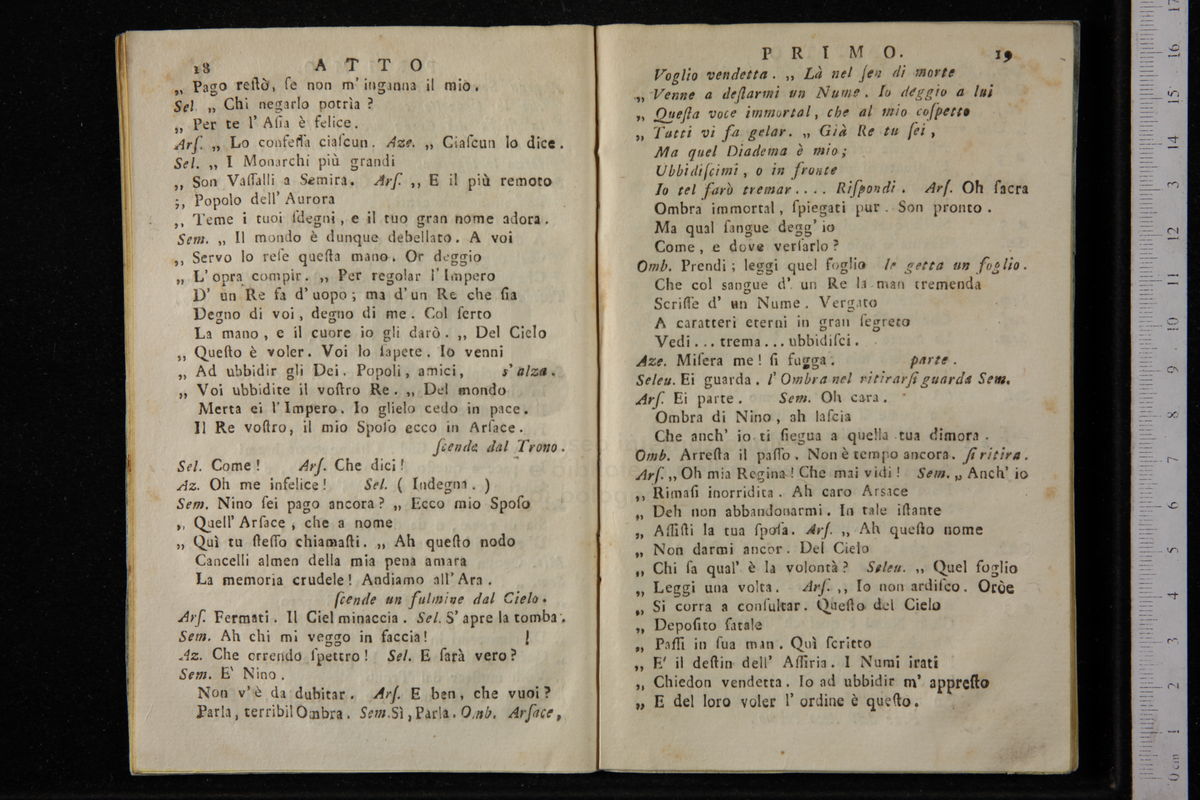 18 ATTO
„ Pago reſtò, ſe non m' inganna il mio.
Sel. „ Chi negarlo potria ?
„ Per te l' Aſia è felice.
Arſ. „ Lo confeſſa ciaſcun. Aze. „ Ciaſcun lo dice.
Sel. „ I Monarchi più grandi
„ Son Vaſſalli a Semira. Arſ. „ E il più remoto
„ Popolo dell' Aurora
„ Teme i tuoi ſdegni, e il tuo gran nome adora.
Sem. „ Il mondo è dunque debellato. A voi
„ Servo lo reſe queſta mano. Or deggio
„ L' opra compir. „ Per regolar l' Impero
D' un Re fa d' uopo; ma d' un Re che ſia
Degno di voi, degno di me. Col ſerto
La mano, e il cuore io gli darò. „ Del Cielo
„ Queſto è voler. Voi lo ſapete. Io venni
„ Ad ubbidir gli Dei. Popoli, amici, s' alza.
„ Voi ubbidite il voſtro Re. „ Del mondo
Merta ei l' Impero. Io glielo cedo in pace.
Il Re voſtro, il mio Spoſo ecco in Arſace.
ſcende dal Trono.
Sel. Come! Arſ. Che dici!
Az. Oh me infelice! Sel. ( Indegna. )
Sem. Nino ſei pago ancora? „ Ecco mio Spoſo
„ Quell' Arſace, che a nome
„ Quì tu ſteſſo chiamaſti. „ Ah queſto nodo
Cancelli almen della mia pena amara
La memoria crudele! Andiamo all' Ara.
ſcende un fulmine dal Cielo.
Arſ. Fermati. Il Ciel minaccia. Sel. S' apre la tomba.
Sem. Ah chi mi veggo in faccia!
Az. Che orrendo ſpettro! Sel. E ſarà vero?
Sem. E' Nino.
Non v' è da dubitar. Arſ. E ben, che vuoi?
Parla, terribil Ombra. Sem. Sì, Parla. Omb. Arſace,
PRIMO. 19
Voglio vendetta. „ Là nel ſen di morte
„ Venne a deſtarmi un Nume. Io deggio a lui
„ Queſta voce immortal, che al mio coſpetto
„ Tutti vi fa gelar. „ Già Re tu ſei,
Ma quel Diadema è mio;
Ubbidiſcimi, o in fronte
Io tel farò tremar.... Riſpondi. Arſ. Oh ſacra
Ombra immortal, ſpiegati pur. Son pronto.
Ma qual ſangue degg' io
Come, e dove verſarlo?
Omb. Prendi; leggi quel foglio le getta un foglio.
Che col sangue d' un Re la man tremenda
Scriſſe d' un Nume. Vergato
A caratteri eterni in gran ſegreto
Vedi... trema... ubbidiſci.
Aze. Miſera me! ſi fugga. parte.
Seleu. Ei guarda. l' Ombra nel ritirarſi guarda Sem.
Arſ. Ei parte. Sem. Oh cara.
Ombra di Nino, ah laſcia
Che anch' io ti ſiegua a quella tua dimora.
Omb. Arreſta il paſſo. Non è tempo ancora. ſi ritira.
Arſ. „ Oh mia Regina! Che mai vidi! Sem. „ Anch' io
„ Rimaſi inorridita. Ah caro Arsace
„ Deh non abbandonarmi. In tale iſtante
„ Aſſiſti la tua ſpoſa. Arſ. „ Ah queſto nome
„ Non darmi ancor. Del Cielo
„ Chi ſa qual' è la volontà? Seleu. „ Quel foglio
„ Leggi una volta. Arſ. „ Io non ardiſco. Oròe
„ Si corra a conſultar. Queſto del Cielo
„ Depoſito fatale
„ Paſſi in ſua man. Quì ſcritto
„ E' il deſtin dell' Aſſiria. I Numi irati
„ Chiedon vendetta. Io ad ubbidir m' appreſto
„ E del loro voler l' ordine è queſto.
0 cm 1 2 3 4 5 6 7 8 9 10 11 12 13 14 15 16 17